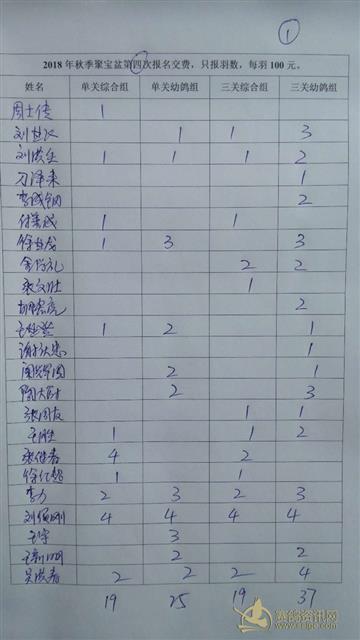 ①
2018 年秋季聚宝盆第四次报名交费，只报羽数，每羽 100 元。
姓名 单关综合组 单关幼鸽组 三关综合组 三关幼鸽组
周士传 1
刘 1 1 3
刘洪生 1 1 1 2
刁泽来 1
李成钢 2
付 成 1 1
徐 成 1 3 3
金 礼 2 2
张文壮 1
胡宏亮 2
王 1 2 1
谢 忠 1
2 1
陶大 2 3
张国友 1 1
王胜 1 1 2
张继春 4 2
徐红超 1 1
李力 2 3 2 3
刘 刚 4 4 4 4
王宇 3
王新明 2 2
吴洪春 2 2 2 4
19 25 19 37
赛鸽资讯网